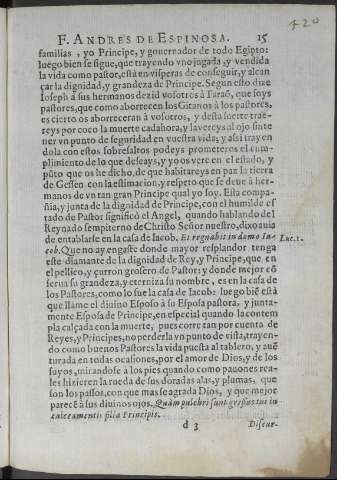 420
F. ANDRES DE ESPINOSA. 15
familias, yo Principe, y gouernador de todo Egipto:
luego bien se sigue, que trayendo vno jugada, y vendida
la vida como pastor, està en visperas de conseguir, y alcan
çar la dignidad, y grandeza de Principe. Segun esto dize
Ioseph à sus hermanos dezid vosotros à Faraõ, que soys
pastores, que como aborrecen los Gitanos à los pastores,
es cierto os aborreceran à vosotros, y desta suerte trae-
reys por coco la muerte cada hora, y la vereys al ojo sin te
ner vn punto de seguridad en vuestra vida; y assi trayen
dola con estos sobresaltos podeys prometeros el cum-
plimiento de lo que deseays, y yo os vere en el estado, y
pũto que os he dicho, de que habitareys en paz la tierra
de Gessen con la estimacion, y respeto que se deue à her-
manos de vn tan gran Principe qual yo soy. Esta compa
ñia, y junta de la dignidad de Principe, con el humilde es
tado de Pastor significò el Angel, quando hablando del
Reynado sempiterno de Christo Señor nuestro, dixo auia
de entablarse en la casa de Iacob. Et regnabit in domo Ia- Luc. 1.
cob. Que no ay engaste donde mayor resplandor tenga
este diamante de la dignidad de Rey, y Principe, que en
el pellico, y çurron grosero de Pastor: y donde mejor cõ
serua su grandeza, y eterniza su nombre, es en la casa de
los Pastores, como lo fue la casa de Iacob: luego biẽ està
que llame el diuino Esposo à su Esposa pastora, y junta-
mente Esposa de Principe, en especial quando la contem
pla calçada con la muerte, pues corre tan por cuenta de
Reyes, y Principes, no perderla vn punto de vista, trayen-
do como buenos Pastores la vida puesta al tablero, y auẽ
turada en todas ocasiones, por el amor de Dios, y de los
suyos, mirandose à los pies quando como pauones rea-
les hizieren la rueda de sus doradas alas, y plumas, que
son los passos, con que mas se agrada Dios, y que mejor
parecẽ à sus diuinos ojos. Quàm pulchri sunt gressus tui in
calceamentis filia Principis.
d 3 Discur-